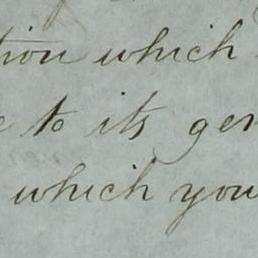 tion which
to its gen
which you